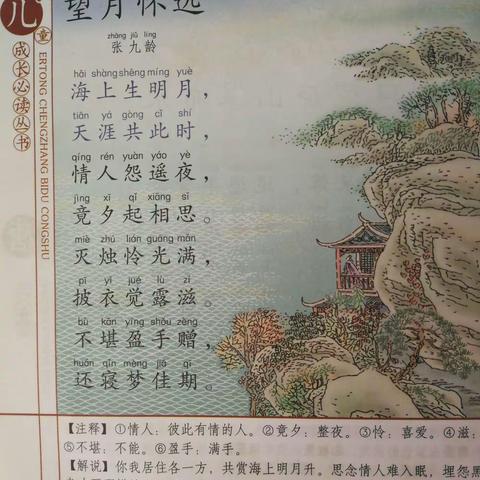 儿童
成长必读丛书
ERTONG CHENGZHANG BIDU CONGSHU
望月怀远
zhāng jiǔ líng
张九龄
hǎi shàng shēng míng yuè
海上生明月，
tiān yá gòng cǐ shí
天涯共此时，
qíng rén yuàn yáo yè
情人怨遥夜，
jìng xī qǐ xiāng sī
竟夕起相思。
miè zhú lián guāng mǎn
灭烛怜光满，
pī yī jué lù zī
披衣觉露滋。
bù kān yíng shǒu zèng
不堪盈手赠，
huán qǐn mèng jiā qī
还寝梦佳期。
【注释】①情人：彼此有情的人。②竟夕：整夜。③怜：喜爱。④滋：
⑤不堪：不能。⑥盈手：满手。
【解说】你我居住各一方，共赏海上明月升。思念情人难入眠，埋怨黑